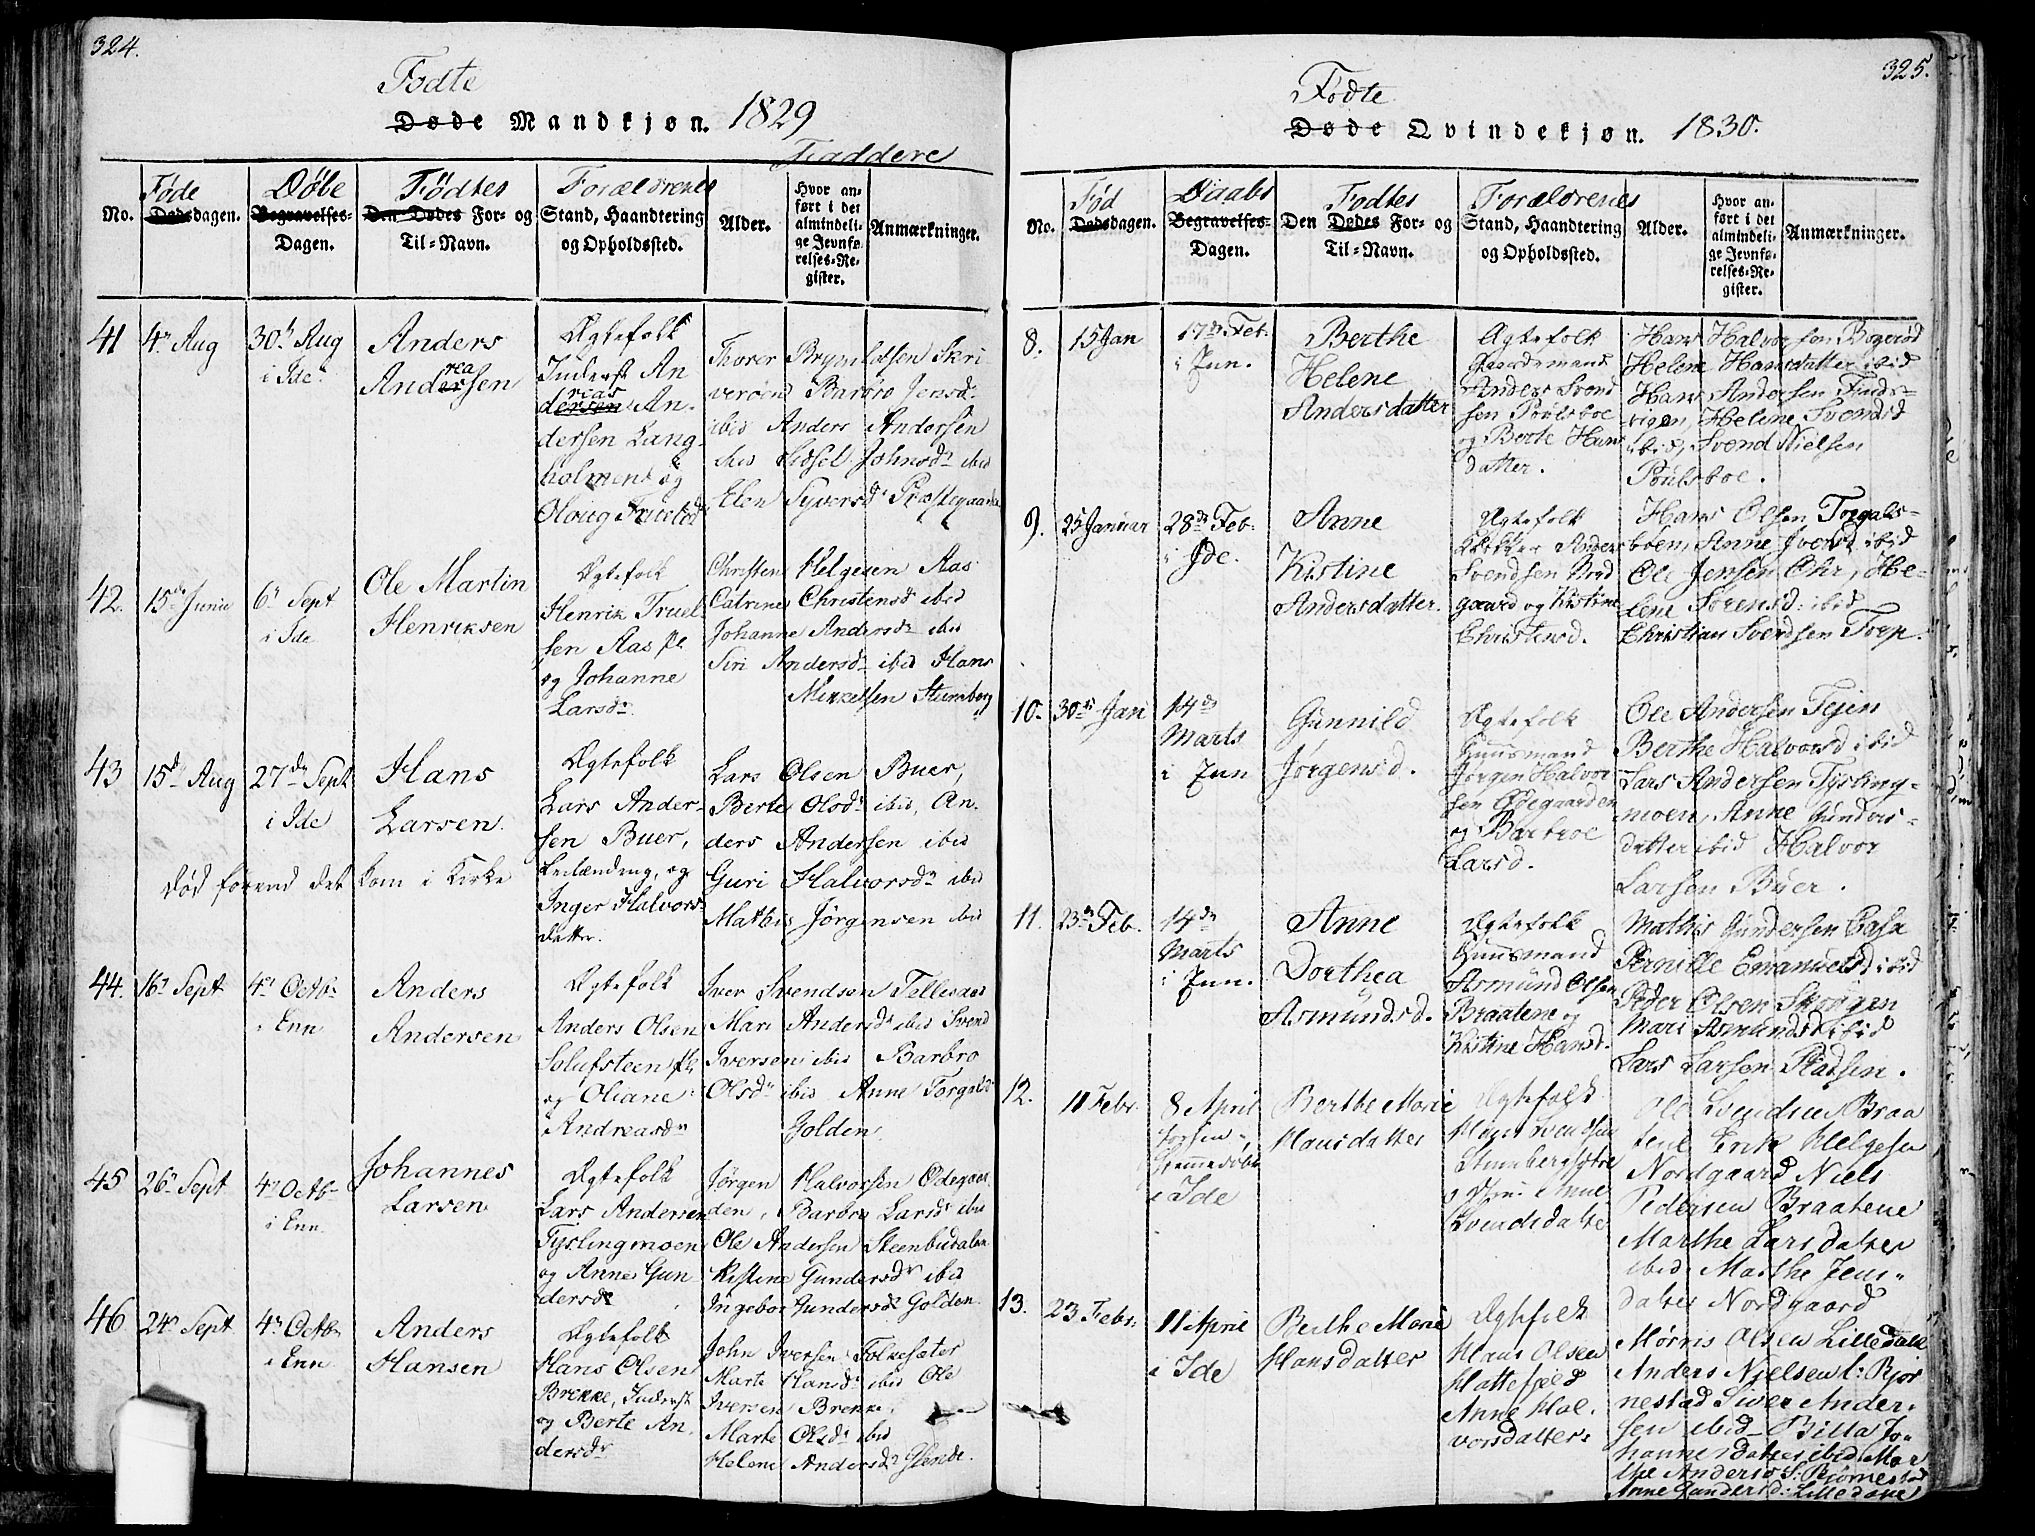 324.
Fodte
Døde Mandkjøn. 1829
Faddere
Føde Døbe Födtes Forældrenes
No. Dødsdagen. Begravelses-Dagen. Den Dødes For- og Til-Navn. Stand, Haandtering og Opholdssted. Alder. Hvor anført i det almindelige Jevnførelses-Register. Anmærkninger.
41 4de Aug 30te Aug i Ide
Anders
Andersen rea
Ægtefolk
Inderst An
dersen reas An.
dersen Lang
holmen og
Oloug Truelsd
Thorer Brynildsen Skri
verøen Barbro Jensd.
ibid Anders Andersen
ibid Sidsel Johnsd. ibid
Elen Syversd. Præstegaarden
42. 15de Junii 6te Sept i Ide
Ole Martin
Henriksen
Ægtefolk
Henrik Truel
sen Aas pl
og Johanne
Larsdr
Christen Helgesen Aas
Catrine Christensd ibid
Johanne Andersdr ibid
Siri Andersdr ibid Hans
Mikkelsen Stumberg
43 15de Aug 27de Sept i Ide
Hans
Larsen
Ægtefolk
Lars Ander-
sen Buer,
Leilænding, og
Inger Halvors
datter.
Lars Olsen Buer,
Berte Olsdr ibid, An-
ders Andersen ibid
Guri Halvorsdr ibid
Mathis Jörgensen ibid
død førend det kom i Kirke
44. 16de Sept 4de Octbr i Enn
Anders
Andersen
Ægtefolk
Anders Olsen
Solufsteen pl
og Oliane
Andreasdr
Iver Svendsen Tellesaas
Mari Andersdr ibid Svend
Iversen ibid Barbro
Olsdr ibid Anne Torgalsd
Golden
45 26de Sept 4de Octbr i Enn
Johannes
Larsen
Ægtefolk
Lars Andersen
Tyslingmoen
og Anne Gun
dersdr
Jörgen Halvorsen Ödegaar
den, Barbro Larsdr ibid
Ole Andersen Steenbudalen
Kistine Gundersdr ibid
Ingebor Gundersdr Golden.
46 24de Sept 4de Octbr i Enn
Anders
Hansen
Ægtefolk
Hans Olsen
Brekke, Inderst
og Berte An
dersdr
John Iversen Folkesæter
Marte Hansdr ibid Ole
Iversen Brekke
Marte Olsdr ibid
Helene Andersdr Glende.
325.
Fødte
Døde Qvindekjøn. 1830.
Fød Daabs Fodtes Forældrenes
No. Dødsdagen. Begravelses-Dagen. Den Dødes For- og Til-Navn. Stand, Haandtering og Opholdssted. Alder. Hvor anført i det almindelige Jevnførelses-Register. Anmærkninger.
8. 15 Jan 17de Feb. i Enn.
Berthe
Helene
Andersdatter
Ægtefolk
Gaardmand
Anders Svend
sen Poulsboe
og Berte Hans
datter.
Hans Halvorsen Bøgerød
Helene Hansdatter ibid
Hans Andersen
Helene Svendsd
ibid, Svend Nielsen
Poulsboe.
9. 25 Januar 28de Feb. i Ide.
Anne
Kistine
Andersdatter.
Ægtefolk
Anders
Svendsen Nord
gaard og Kistine
Christensd.
Hans Olsen Torgals-
boen, Anne Iversd ibid
Ole Jensen Ohr, He-
lene Sørensd. ibid
Christian Svendsen Torp.
10. 30te Jan 14de Marts i Enn
Gunnild
Jørgensd.
Ægtefolk
Huusmand
Jørgen Halvor
sen Ødegaarden
og Barbroe
Larsd.
Ole Andersen Tejen
Berthe Halvorsd ibid
Lars Andersen Tysling-
moen, Anne Gunders-
datter ibid Halvor
Larsen Buer.
11. 23de Feb. 14de Marts i Enn.
Anne
Dorthea
Asmundsd.
Ægtefolk
Huusmand
Asmund Olsen
Braatene og
Kistine Hansd.
Mathis Gundersen
Pernille Emanuelsd ibid
Peder Olsen Skovgen
Mari Asmundsd ibid
Lars Larsen Pladsen.
12. 11 Febr. 8 April i Ide
Berthe Marie
Hansdatter
Ægtefolk
Hans Svendsen
Stumberg
Anne
Svendsdatter
Ole Svendsen Braa
tene Erik Helgesen
Nordgaard Niels
Pedersen Braatene
Marthe Larsdatter
ibid Marthe Jens-
datter Nordgaard
13. 23 Febr. 11 April i Ide
Berthe Marie
Hansdatter
Ægtefolk
Hans Olsen
Hattefjeld
Anne Hal.
vorsdatter
Mørris Olsen Lilledall
Anders Nielsen l: Bjør
nestad Siver Ander-
sen ibid Bitta Jo-
hannesdatter ibid Mar
the Andersd S: Bjørnestad
Anne Gundersd: Lilledale